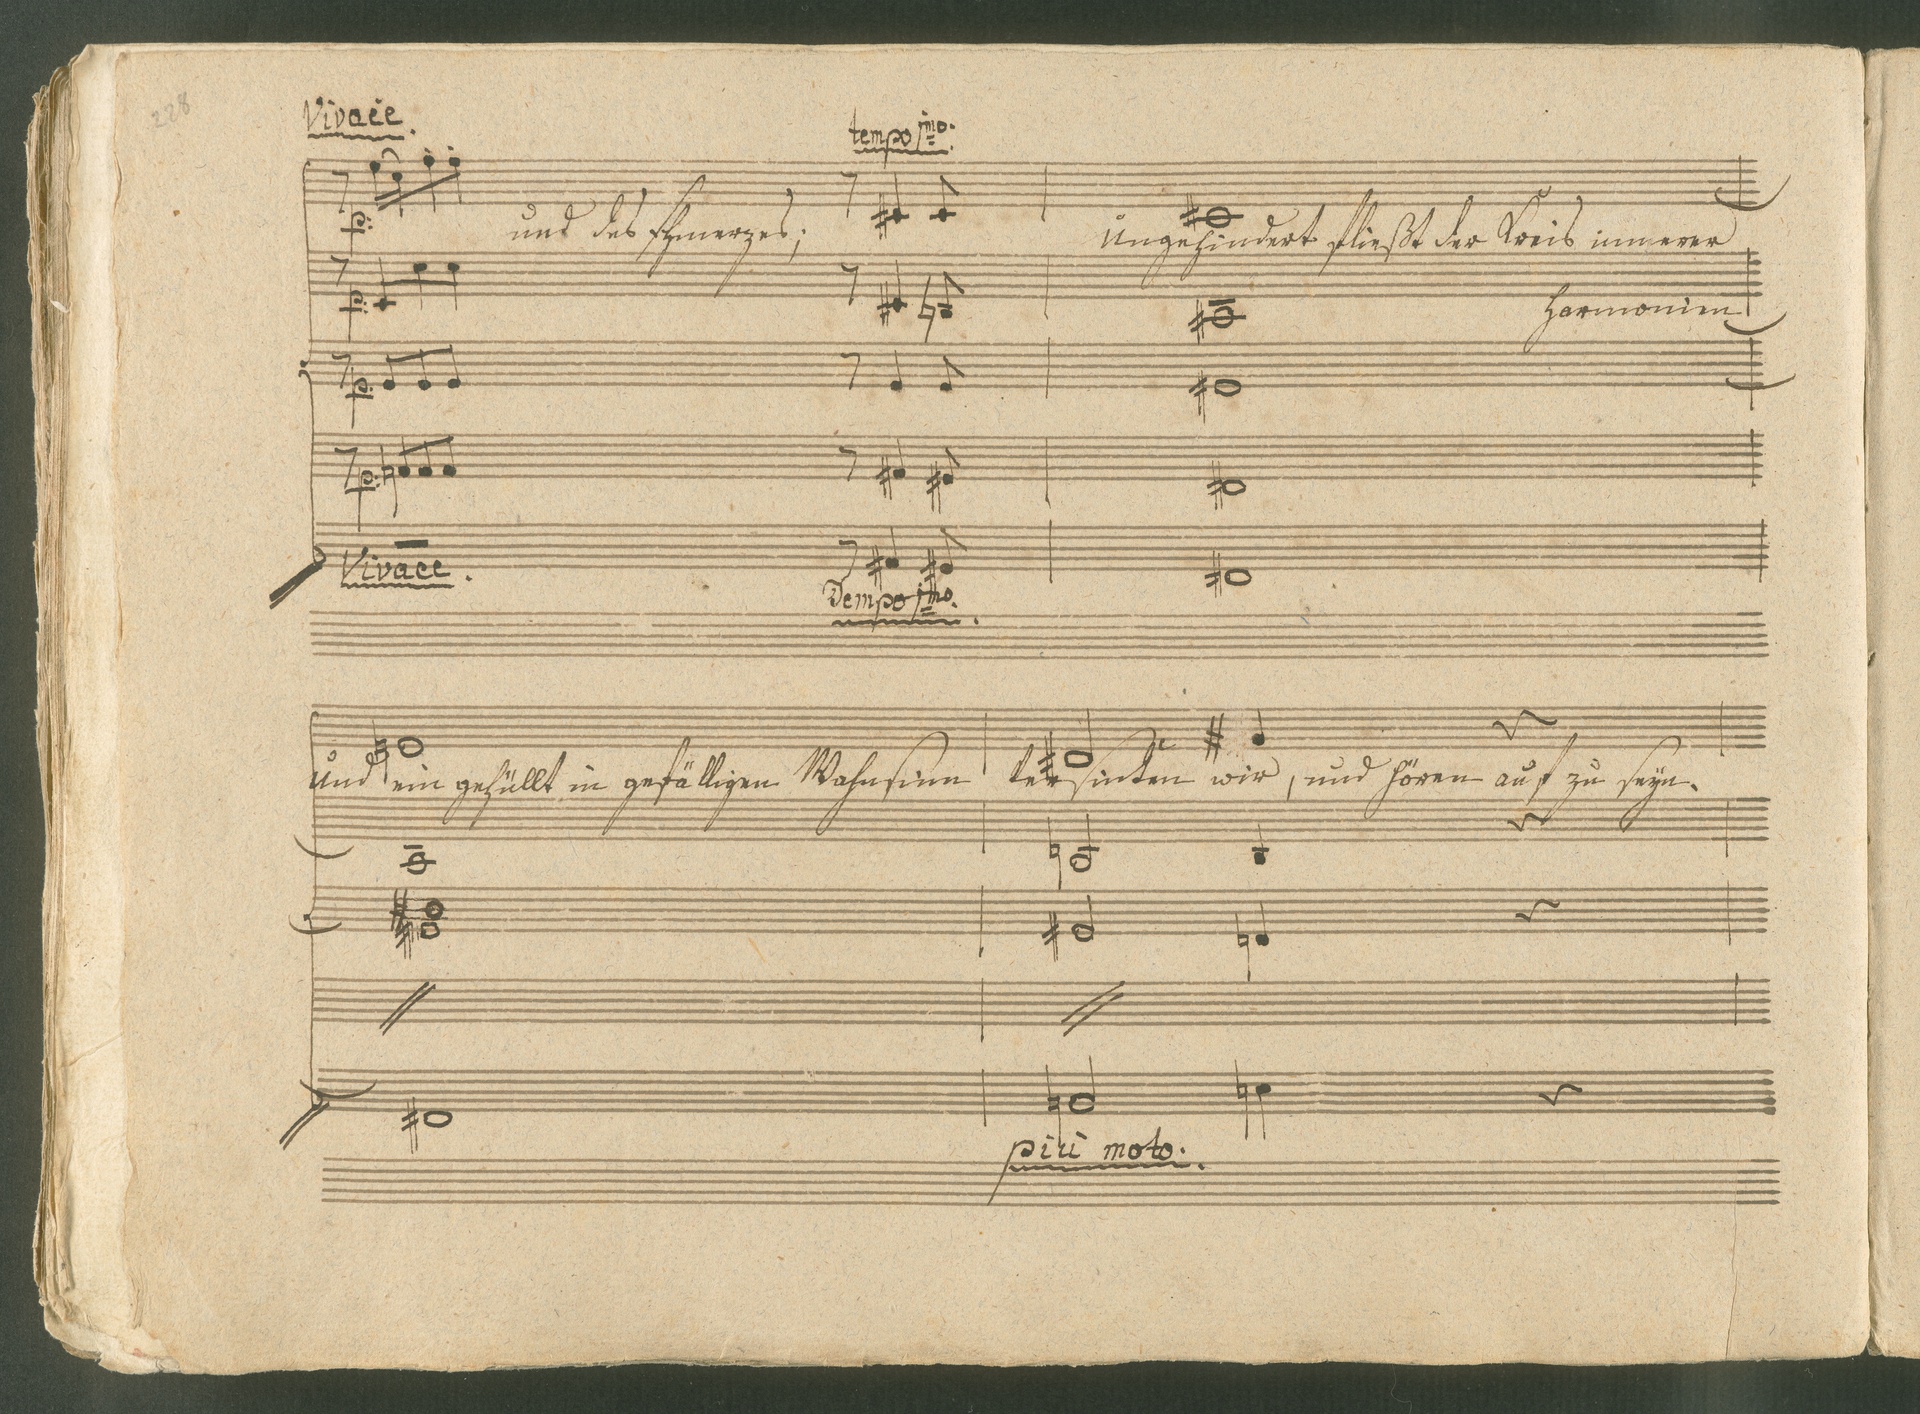 228
Vivace.
tempo jmo.
p:
und des Schmerzes;
ungehindert fließt der Kreis innerer
p:
Harmonien
p:
p:
Vivace.
Tempo jmo.
und ein gehüllt in gefälligen Wahnsinn versinken wir, und hören auf zu seyn.
piu moto.